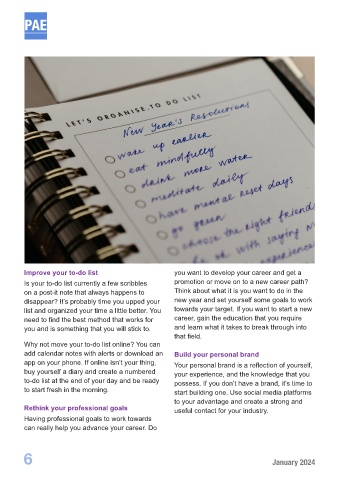 PAE
LET'S ORGANISE.TO DO LIST
New Year's Resolutions
wake up earlier
eat mindfully
drink more water
meditate daily
have mental reset days
go green
choose the right friend
be ok with saying
experience
Improve your to-do list
Is your to-do list currently a few scribbles
on a post-it note that always happens to
disappear? It's probably time you upped your
list and organized your time a little better. You
need to find the best method that works for
you and is something that you will stick to.
Why not move your to-do list online? You can
add calendar notes with alerts or download an
app on your phone. If online isn't your thing,
buy yourself a diary and create a numbered
to-do list at the end of your day and be ready
to start fresh in the morning.
Rethink your professional goals
Having professional goals to work towards
can really help you advance your career. Do
you want to develop your career and get a
promotion or move on to a new career path?
Think about what it is you want to do in the
new year and set yourself some goals to work
towards your target. If you want to start a new
career, gain the education that you require
and learn what it takes to break through into
that field.
Build your personal brand
Your personal brand is a reflection of yourself,
your experience, and the knowledge that you
possess. If you don't have a brand, it's time to
start building one. Use social media platforms
to your advantage and create a strong and
useful contact for your industry.
6
January 2024